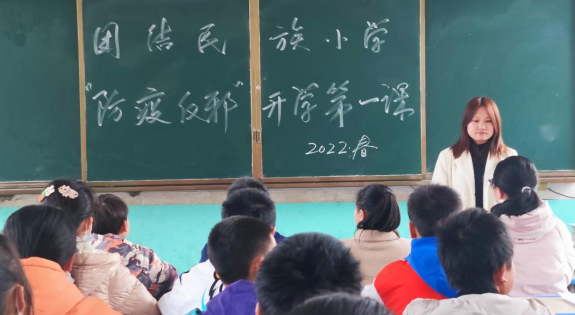 团结民族小学
“防疫反邪”开学第一课
2022.春